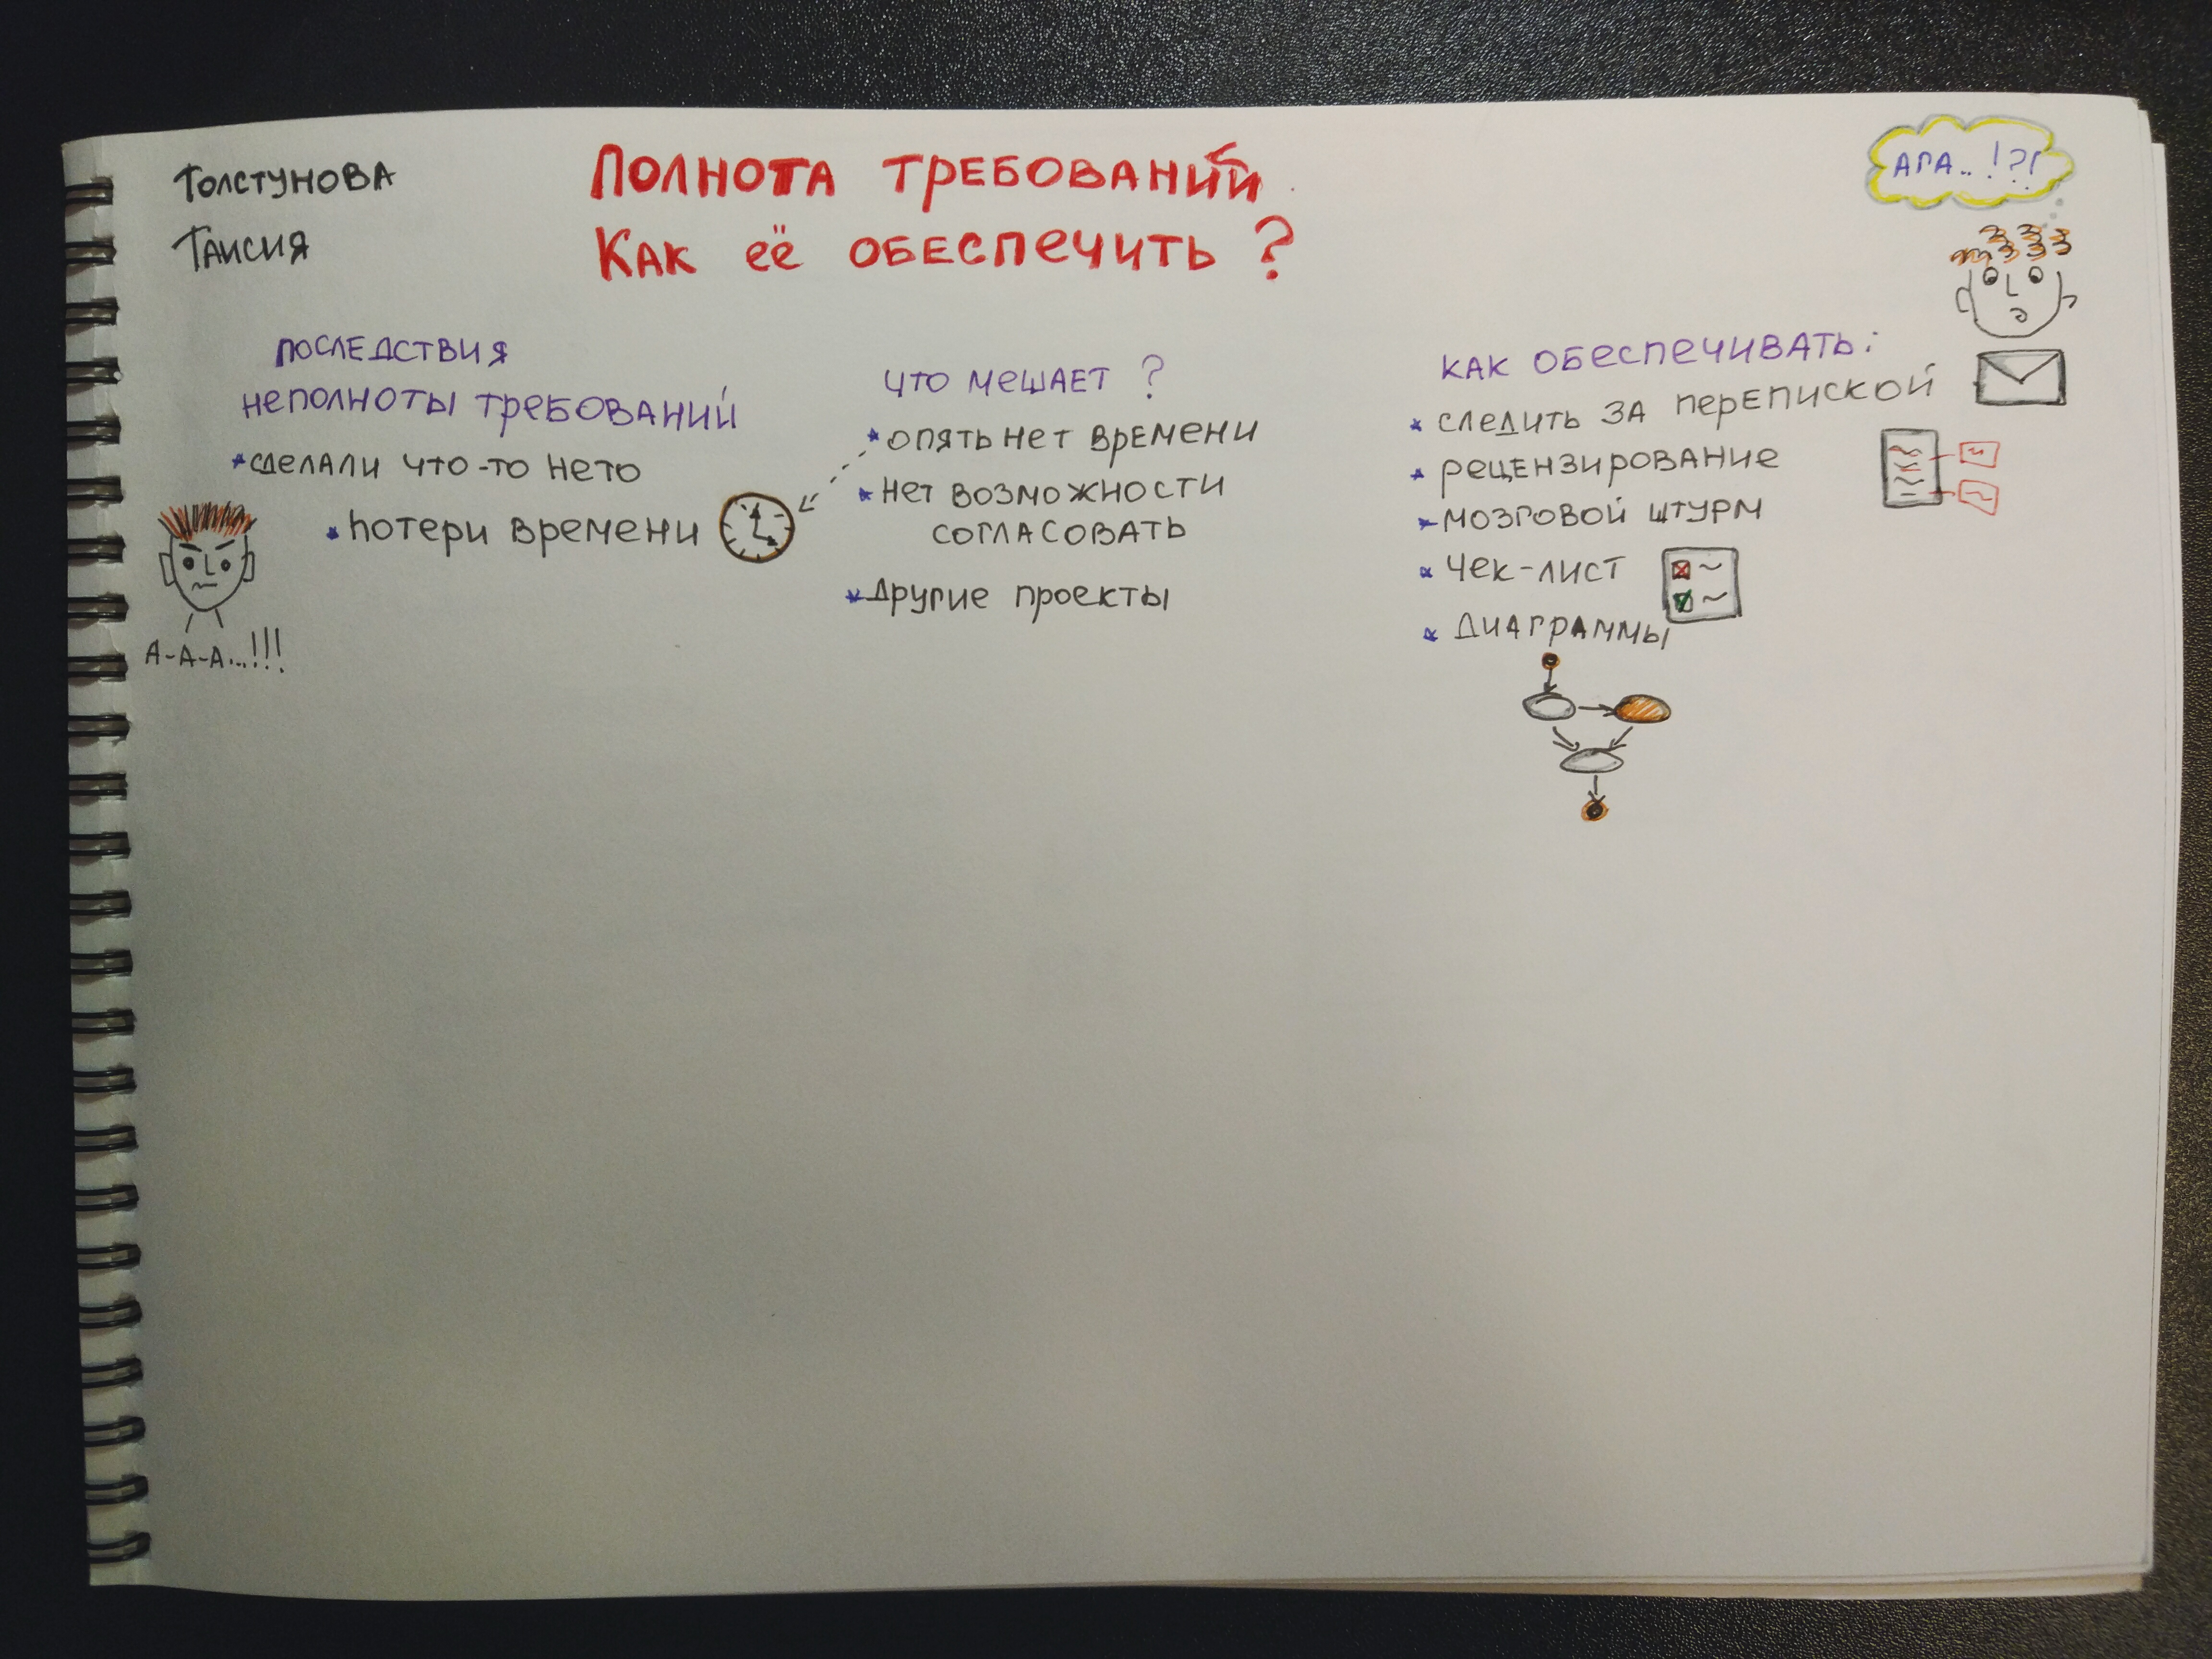 Толстунова
Таисия
Полнота требований
Как её обеспечить?
Ага..!?!
последствия
неполноты требований
* сделали что-то нето
* потери времени
А-А-А...!!!
что мешает ?
* опять нет времени
* нет возможности
согласовать
* другие проекты
как обеспечивать:
* следить за перепиской
* рецензирование
* мозговой штурм
* чек-лист
* диаграммы